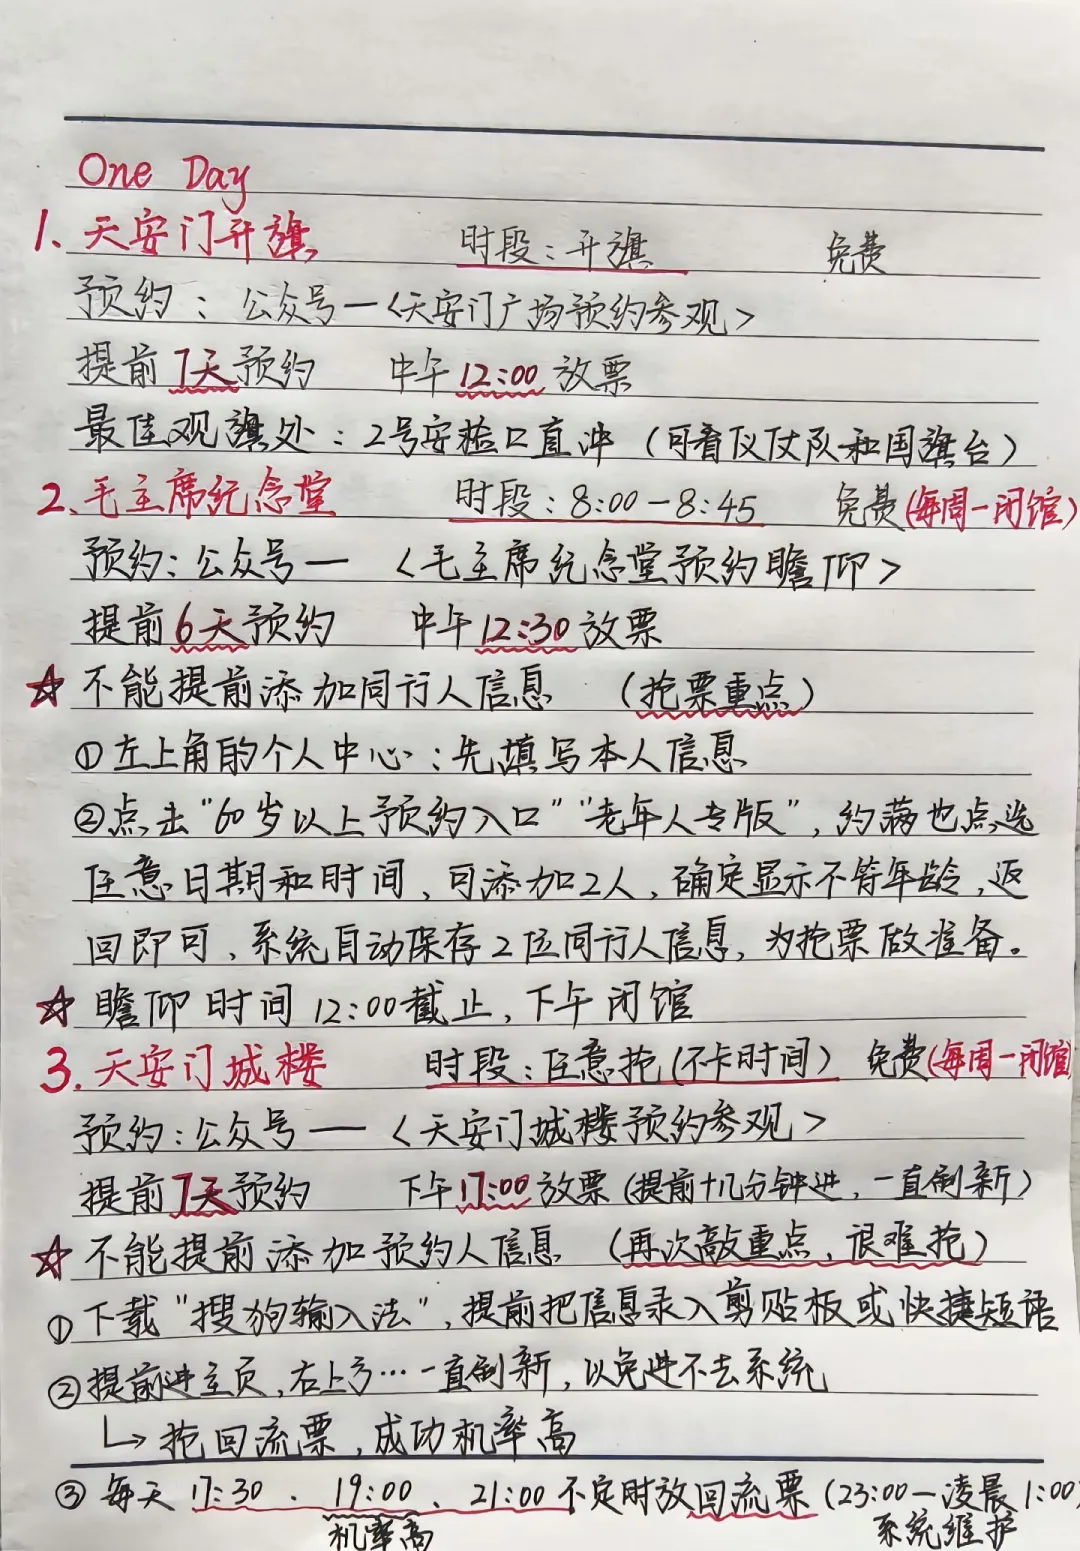 One Day
1、天安门升旗 时段：升旗 免费
预约：公众号—<天安门广场预约参观>
提前7天预约 中午12:00放票
最佳观旗处：2号安检口直冲（可看仪仗队和国旗台）
2、毛主席纪念堂 时段：8:00-8:45 免费(每周一闭馆)
预约：公众号—<毛主席纪念堂预约瞻仰>
提前6天预约 中午12:30放票
☆不能提前添加同行人信息（抢票重点）
①左上角的个人中心：先填写本人信息
②点击“60岁以上预约入口”“老年人专版”，约满也点选
任意日期和时间，可添加2人，确定显示不符年龄，返
回即可，系统自动保存2位同行人信息，为抢票做准备。
☆瞻仰时间12:00截止，下午闭馆
3.天安门城楼 时段：任意抢(不卡时间) 免费(每周一闭馆)
预约：公众号—<天安门城楼预约参观>
提前7天预约 下午17:00放票(提前十几分钟进，一直刷新)
☆不能提前添加预约人信息（再次敲重点，很难抢）
①下载“搜狗输入法”，提前把信息录入剪贴板或快捷短语
②提前进主页，右上方…一直刷新，以免进不去系统
↳抢回流票，成功机率高
③每天17:30、19:00、21:00不定时放回流票(23:00—凌晨1:00)
机率高 系统维护